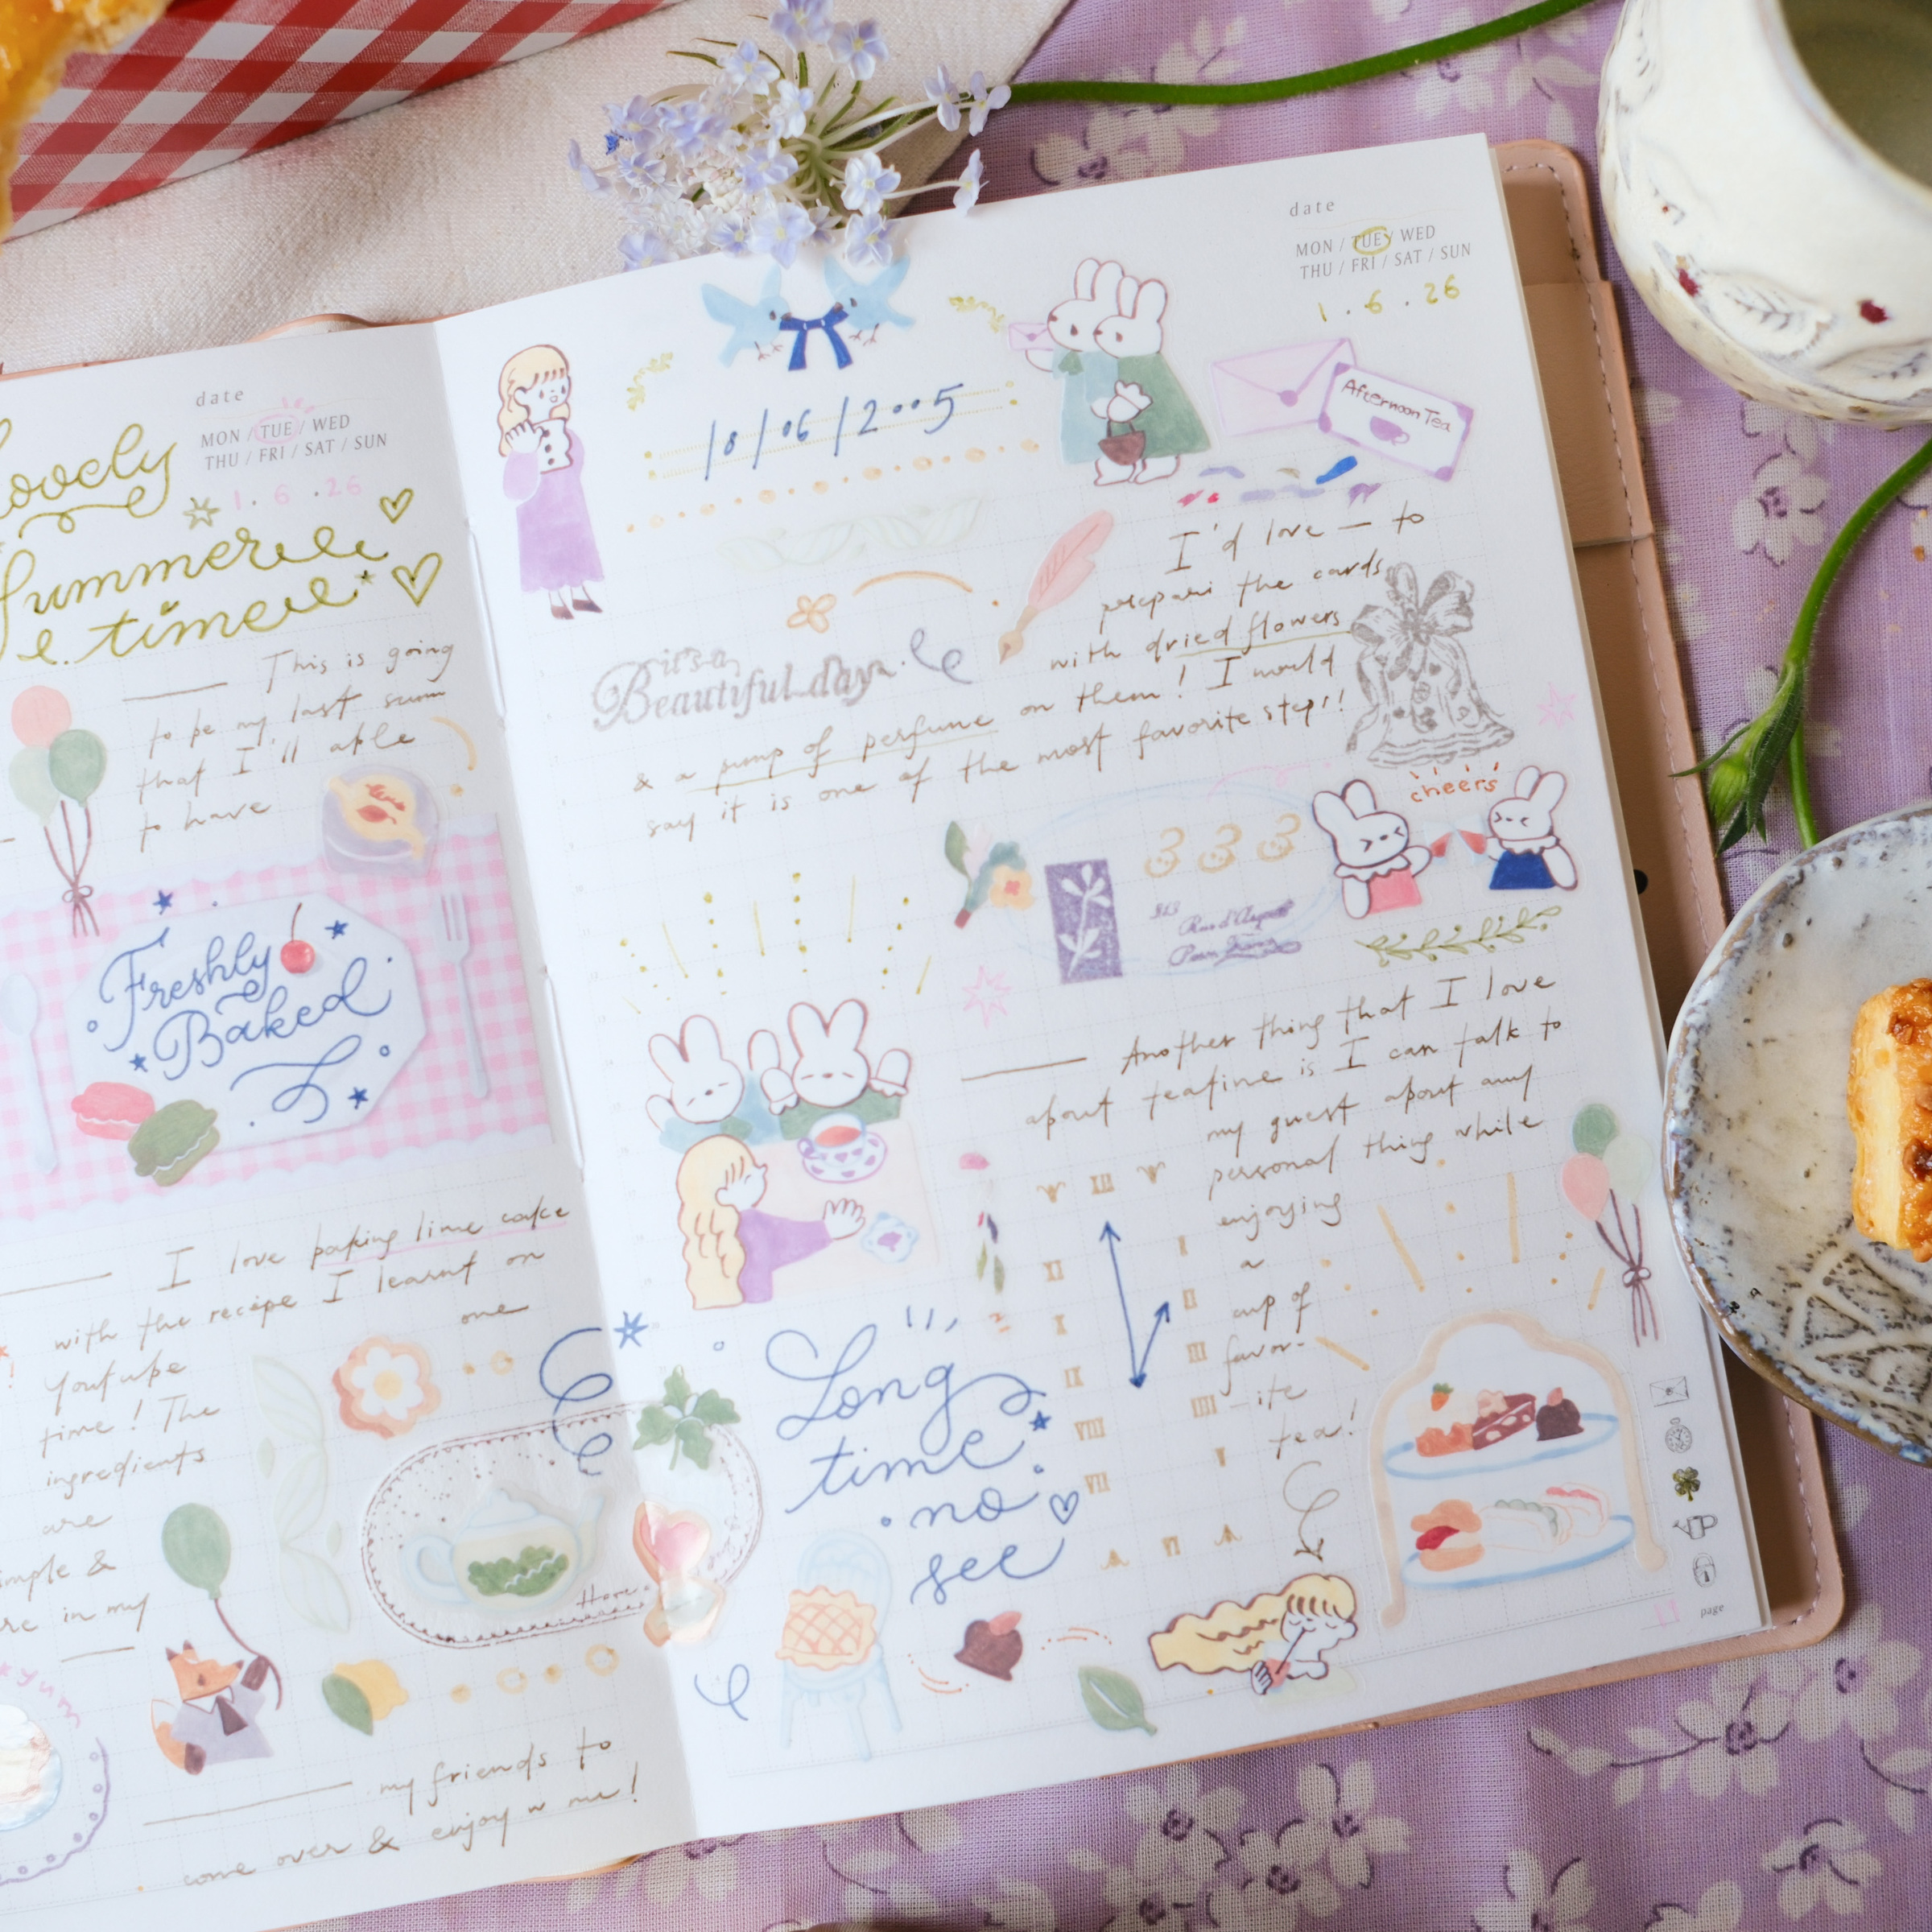 lovely
Summer
time
date
MON / TUE / WED
THU / FRI / SAT / SUN
1. 6 .26
This is going
to be my last summ
that I'll able
to have
Freshly
Baked
I love baking lime cake
with the recipe I learnt on
Youtube one
time! The
ingredients
are
imple &
re in my
yum
Have
my friends to
come over & enjoy w me!
date
MON / TUE / WED
THU / FRI / SAT / SUN
1 . 6 . 26
18/06/2005
Afternoon Tea
I'd love — to
prepari the cards
with dried flowers
it's a
Beautiful day
& a pump of perfume on them! I would
say it is one of the most favorite step!!
cheers
333
Another thing that I love
about teatime is I can talk to
my guest about any
personal thing while
enjoying
a
cup of
favor-
ite
tea!
XII
I
II
III
IIII
V
VI
VII
VIII
IX
X
XI
Long
time
no
see
page